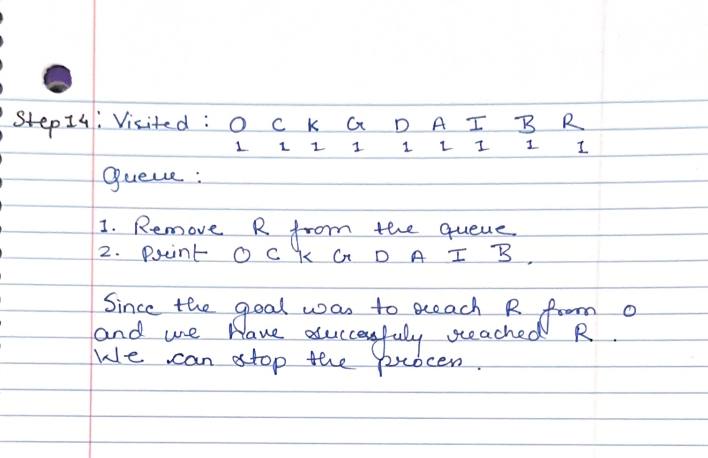 Step 14: Visited : O C K G D A I B R
1 1 1 1 1 1 1 1 1
Queue :
1. Remove R from the queue
2. Print O C K G D A I B.
Since the goal was to reach R from O
and we have successfuly reached R.
We can stop the process.